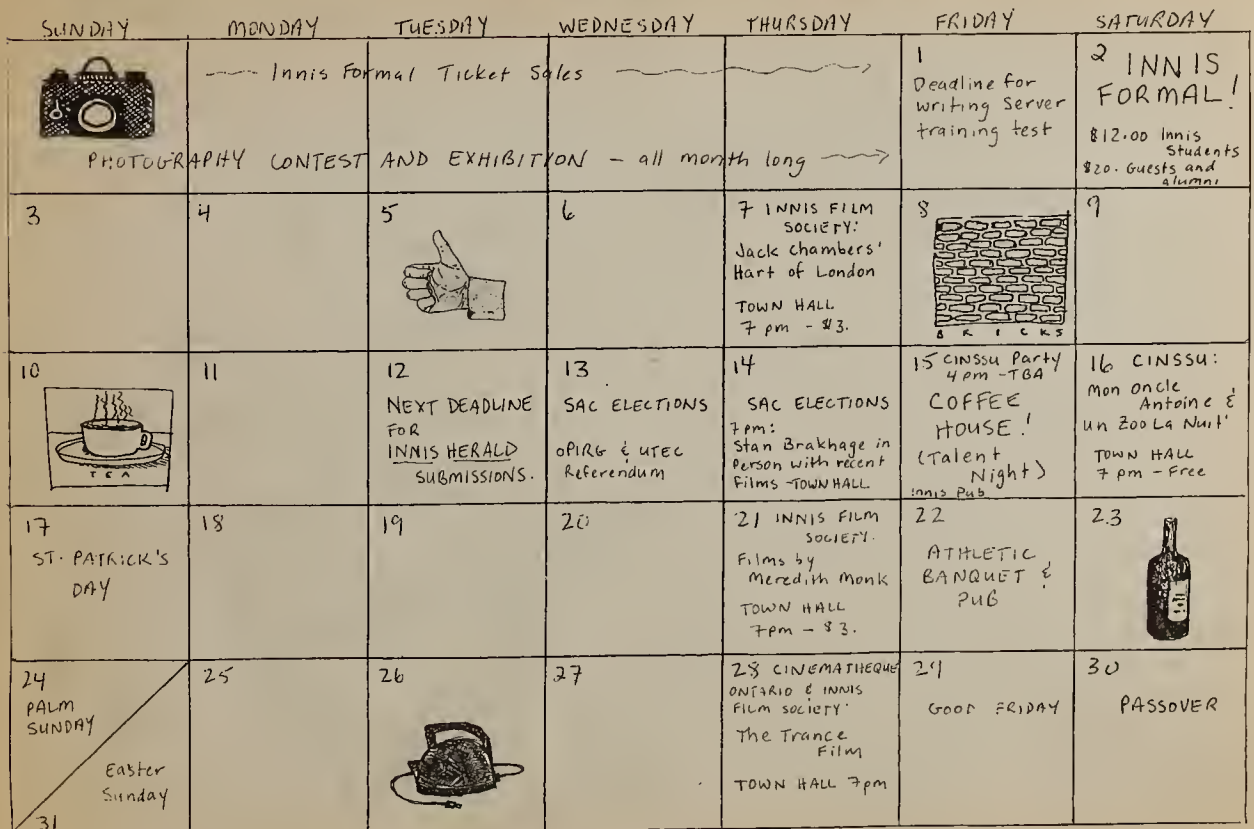 SUNDAY MONDAY TUESDAY WEDNESDAY THURSDAY FRIDAY SATURDAY
Innis Formal Ticket Sales
PHOTOGRAPHY CONTEST AND EXHIBITION - all month long
1
Deadline for
writing Server
training test
2 INNIS
FORMAL!
$12.00 Innis
Students
$20. Guests and
alumni
3
4
5
6
7 INNIS FILM
SOCIETY:
Jack Chambers'
Hart of London
TOWN HALL
7 pm - $3.
8
BRICKS
9
10
TEA
11
12
NEXT DEADLINE
FOR
INNIS HERALD
SUBMISSIONS.
13
SAC ELECTIONS
OPIRG & UTEC
Referendum
14
SAC ELECTIONS
7pm:
Stan Brakhage in
Person with recent
Films - TOWN HALL
15 CINSSU Party
4 pm - TBA
COFFEE
HOUSE!
(Talent
Night)
Innis Pub
16 CINSSU:
Mon oncle
Antoine &
un Zoo La Nuit'
TOWN HALL
7 pm - Free
17
ST. PATRICK'S
DAY
18
19
20
21 INNIS FILM
SOCIETY.
Films by
Meredith Monk
TOWN HALL
7pm - $3.
22
ATHLETIC
BANQUET &
PUB
23
24
PALM
SUNDAY
Easter
Sunday
31
25
26
27
28 CINEMATHEQUE
ONTARIO & INNIS
FILM SOCIETY:
The Trance
Film
TOWN HALL 7pm
29
GOOD FRIDAY
30
PASSOVER